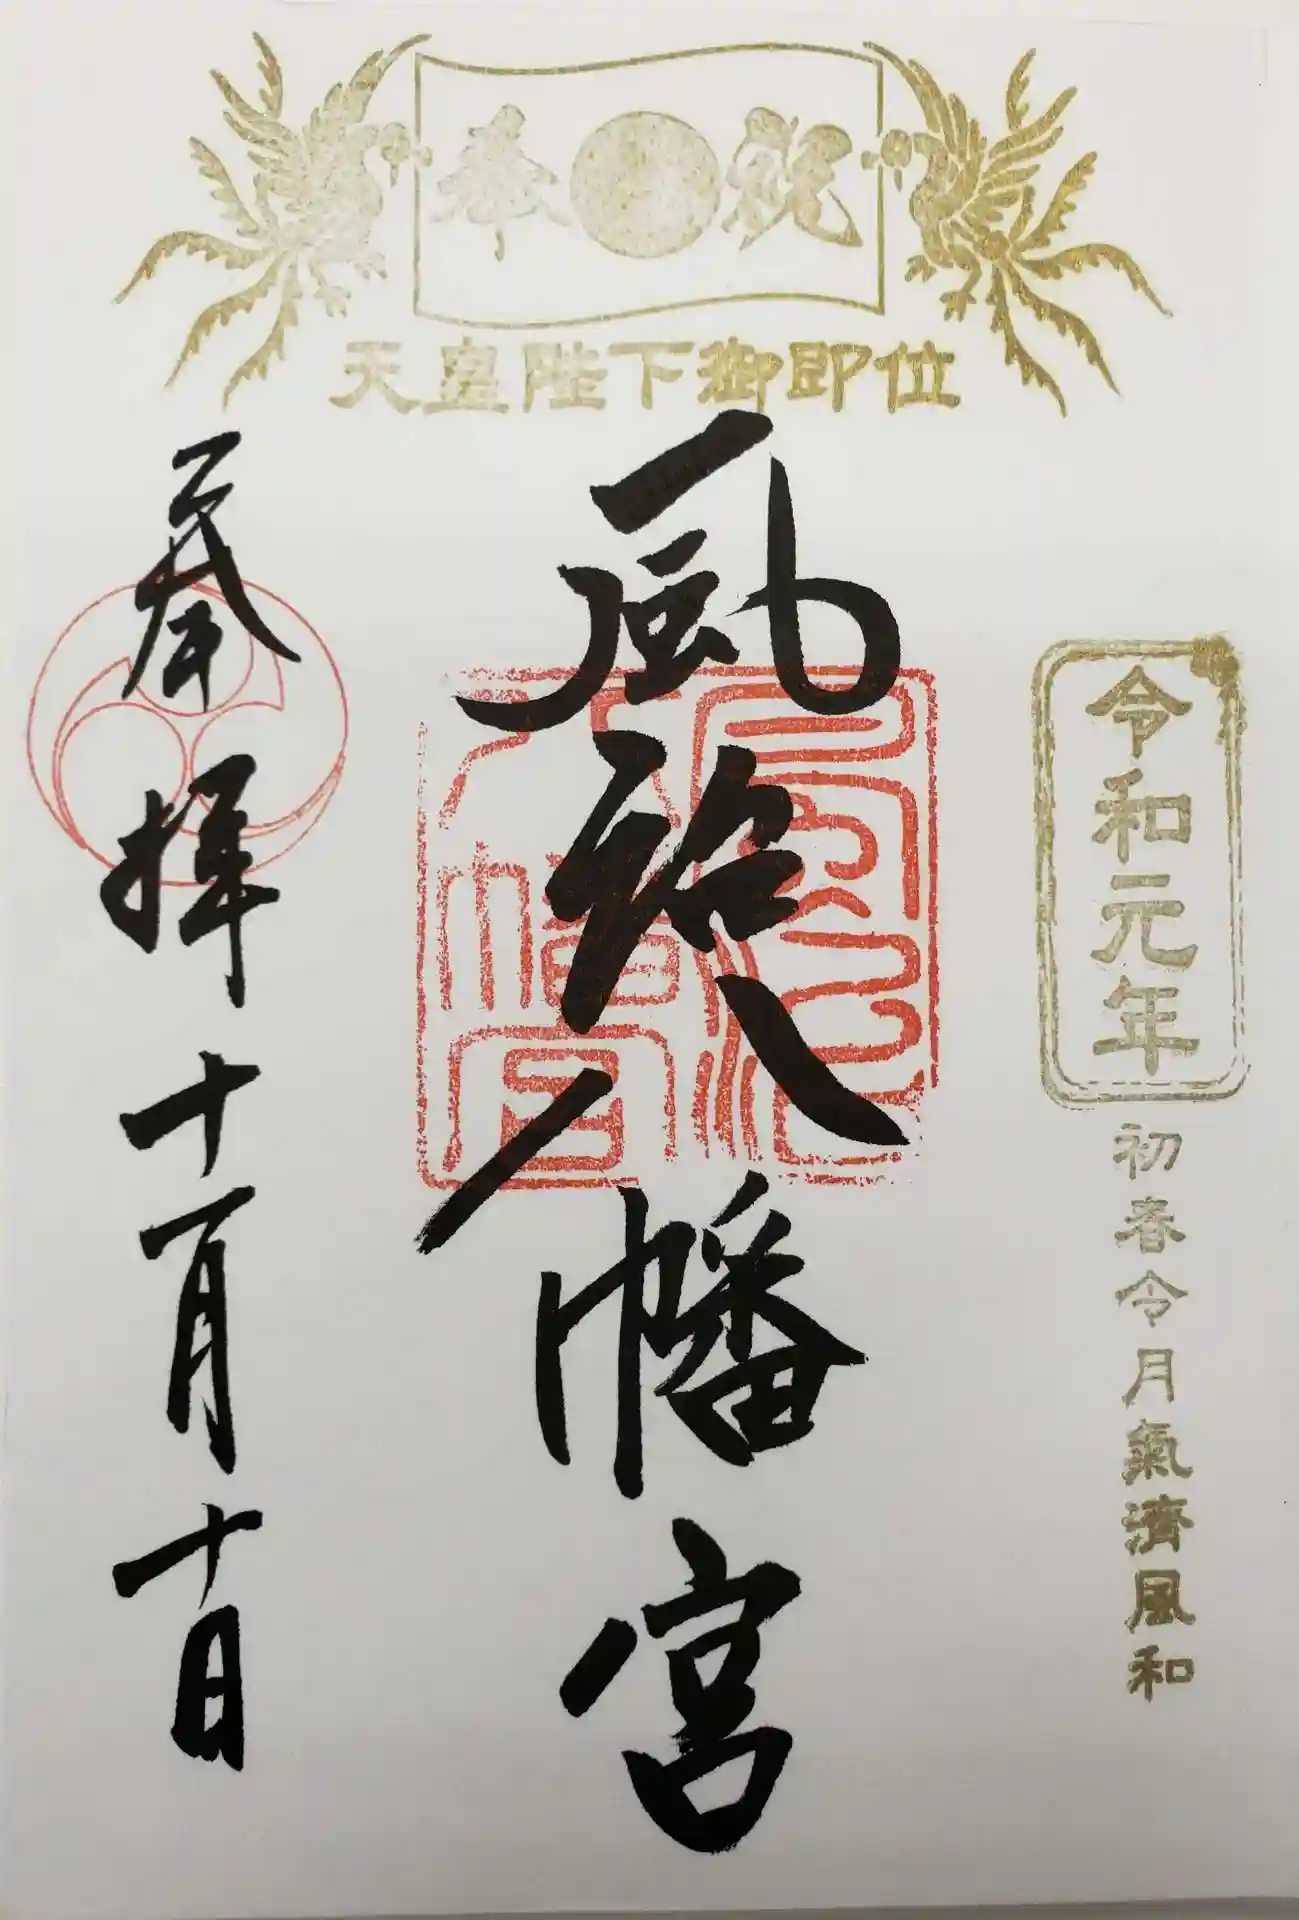 奉祝
天皇陛下御即位
令和元年
初春令月氣濟風和
風治八幡宮
風治
八幡宮
奉拝 十一月十日